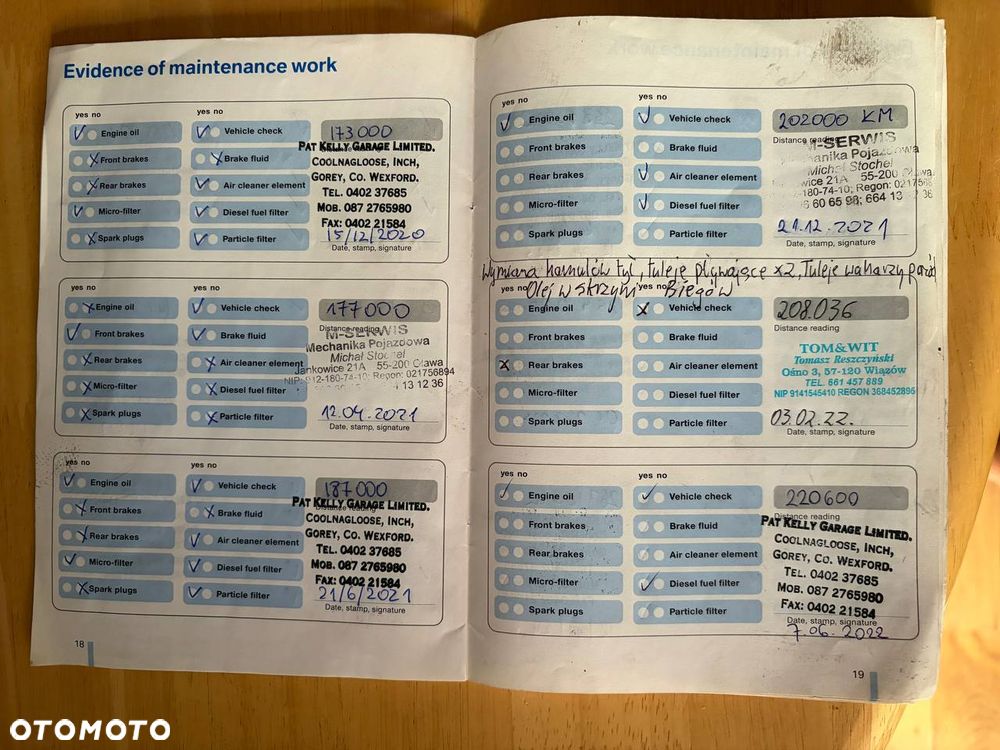 Evidence of maintenance work
yes no
yes no
Engine oil
Vehicle check
173000
Front brakes
Brake fluid
Rear brakes
Air cleaner element
Micro-filter
Diesel fuel filter
Spark plugs
Particle filter
PAT KELLY GARAGE LIMITED.
COOLNAGLOOSE, INCH,
GOREY, CO. WEXFORD.
TEL. 0402 37685
MOB. 087 2765980
FAX: 0402 21584
15/12/2020
Date, stamp, signature
yes no
yes no
Engine oil
Vehicle check
177000
Front brakes
Brake fluid
Rear brakes
Air cleaner element
Micro-filter
Diesel fuel filter
Spark plugs
Particle filter
Distance reading
M-SERWIS
Mechanika Pojazdowa
Michał Stochel
Jankowice 21A 55-200 Oława
NIP: 912-180-74-10; Regon: 021756894
13 12 36
12.04.2021
Date, stamp, signature
yes no
yes no
Engine oil
Vehicle check
187000
Front brakes
Brake fluid
Rear brakes
Air cleaner element
Micro-filter
Diesel fuel filter
Spark plugs
Particle filter
PAT KELLY GARAGE LIMITED.
COOLNAGLOOSE, INCH,
GOREY, CO. WEXFORD.
TEL. 0402 37685
MOB. 087 2765980
FAX: 0402 21584
21/6/2021
Date, stamp, signature
18
yes no
yes no
Engine oil
Vehicle check
202000 KM
Front brakes
Brake fluid
Rear brakes
Air cleaner element
Micro-filter
Diesel fuel filter
Spark plugs
Particle filter
Distance reading
M-SERWIS
Mechanika Pojazdowa
Michał Stochel
21A 55-200 Oława
-74-10; Regon: 021756
60 65 98; 664 13 36
21.12.2021
Date, stamp, signature
Wymiana hamulców tył, tuleje pływające x2, Tuleje waharzy
Olej w skrzyni Biegów
yes no
yes no
Engine oil
Vehicle check
208.036
Front brakes
Brake fluid
Rear brakes
Air cleaner element
Micro-filter
Diesel fuel filter
Spark plugs
Particle filter
Distance reading
TOM&WIT
Tomasz Reszczyński
Ośno 3, 57-120 Wiązów
TEL. 661 457 889
NIP 9141545410 REGON 368452895
03.02.22.
Date, stamp, signature
yes no
yes no
Engine oil
Vehicle check
220600
Front brakes
Brake fluid
Rear brakes
Air cleaner element
Micro-filter
Diesel fuel filter
Spark plugs
Particle filter
Distance reading
PAT KELLY GARAGE LIMITED.
COOLNAGLOOSE, INCH,
GOREY, CO. WEXFORD.
TEL. 0402 37685
MOB. 087 2765980
FAX: 0402 21584
Date, stamp, signature
7.06.2022
19
OTOMOTO